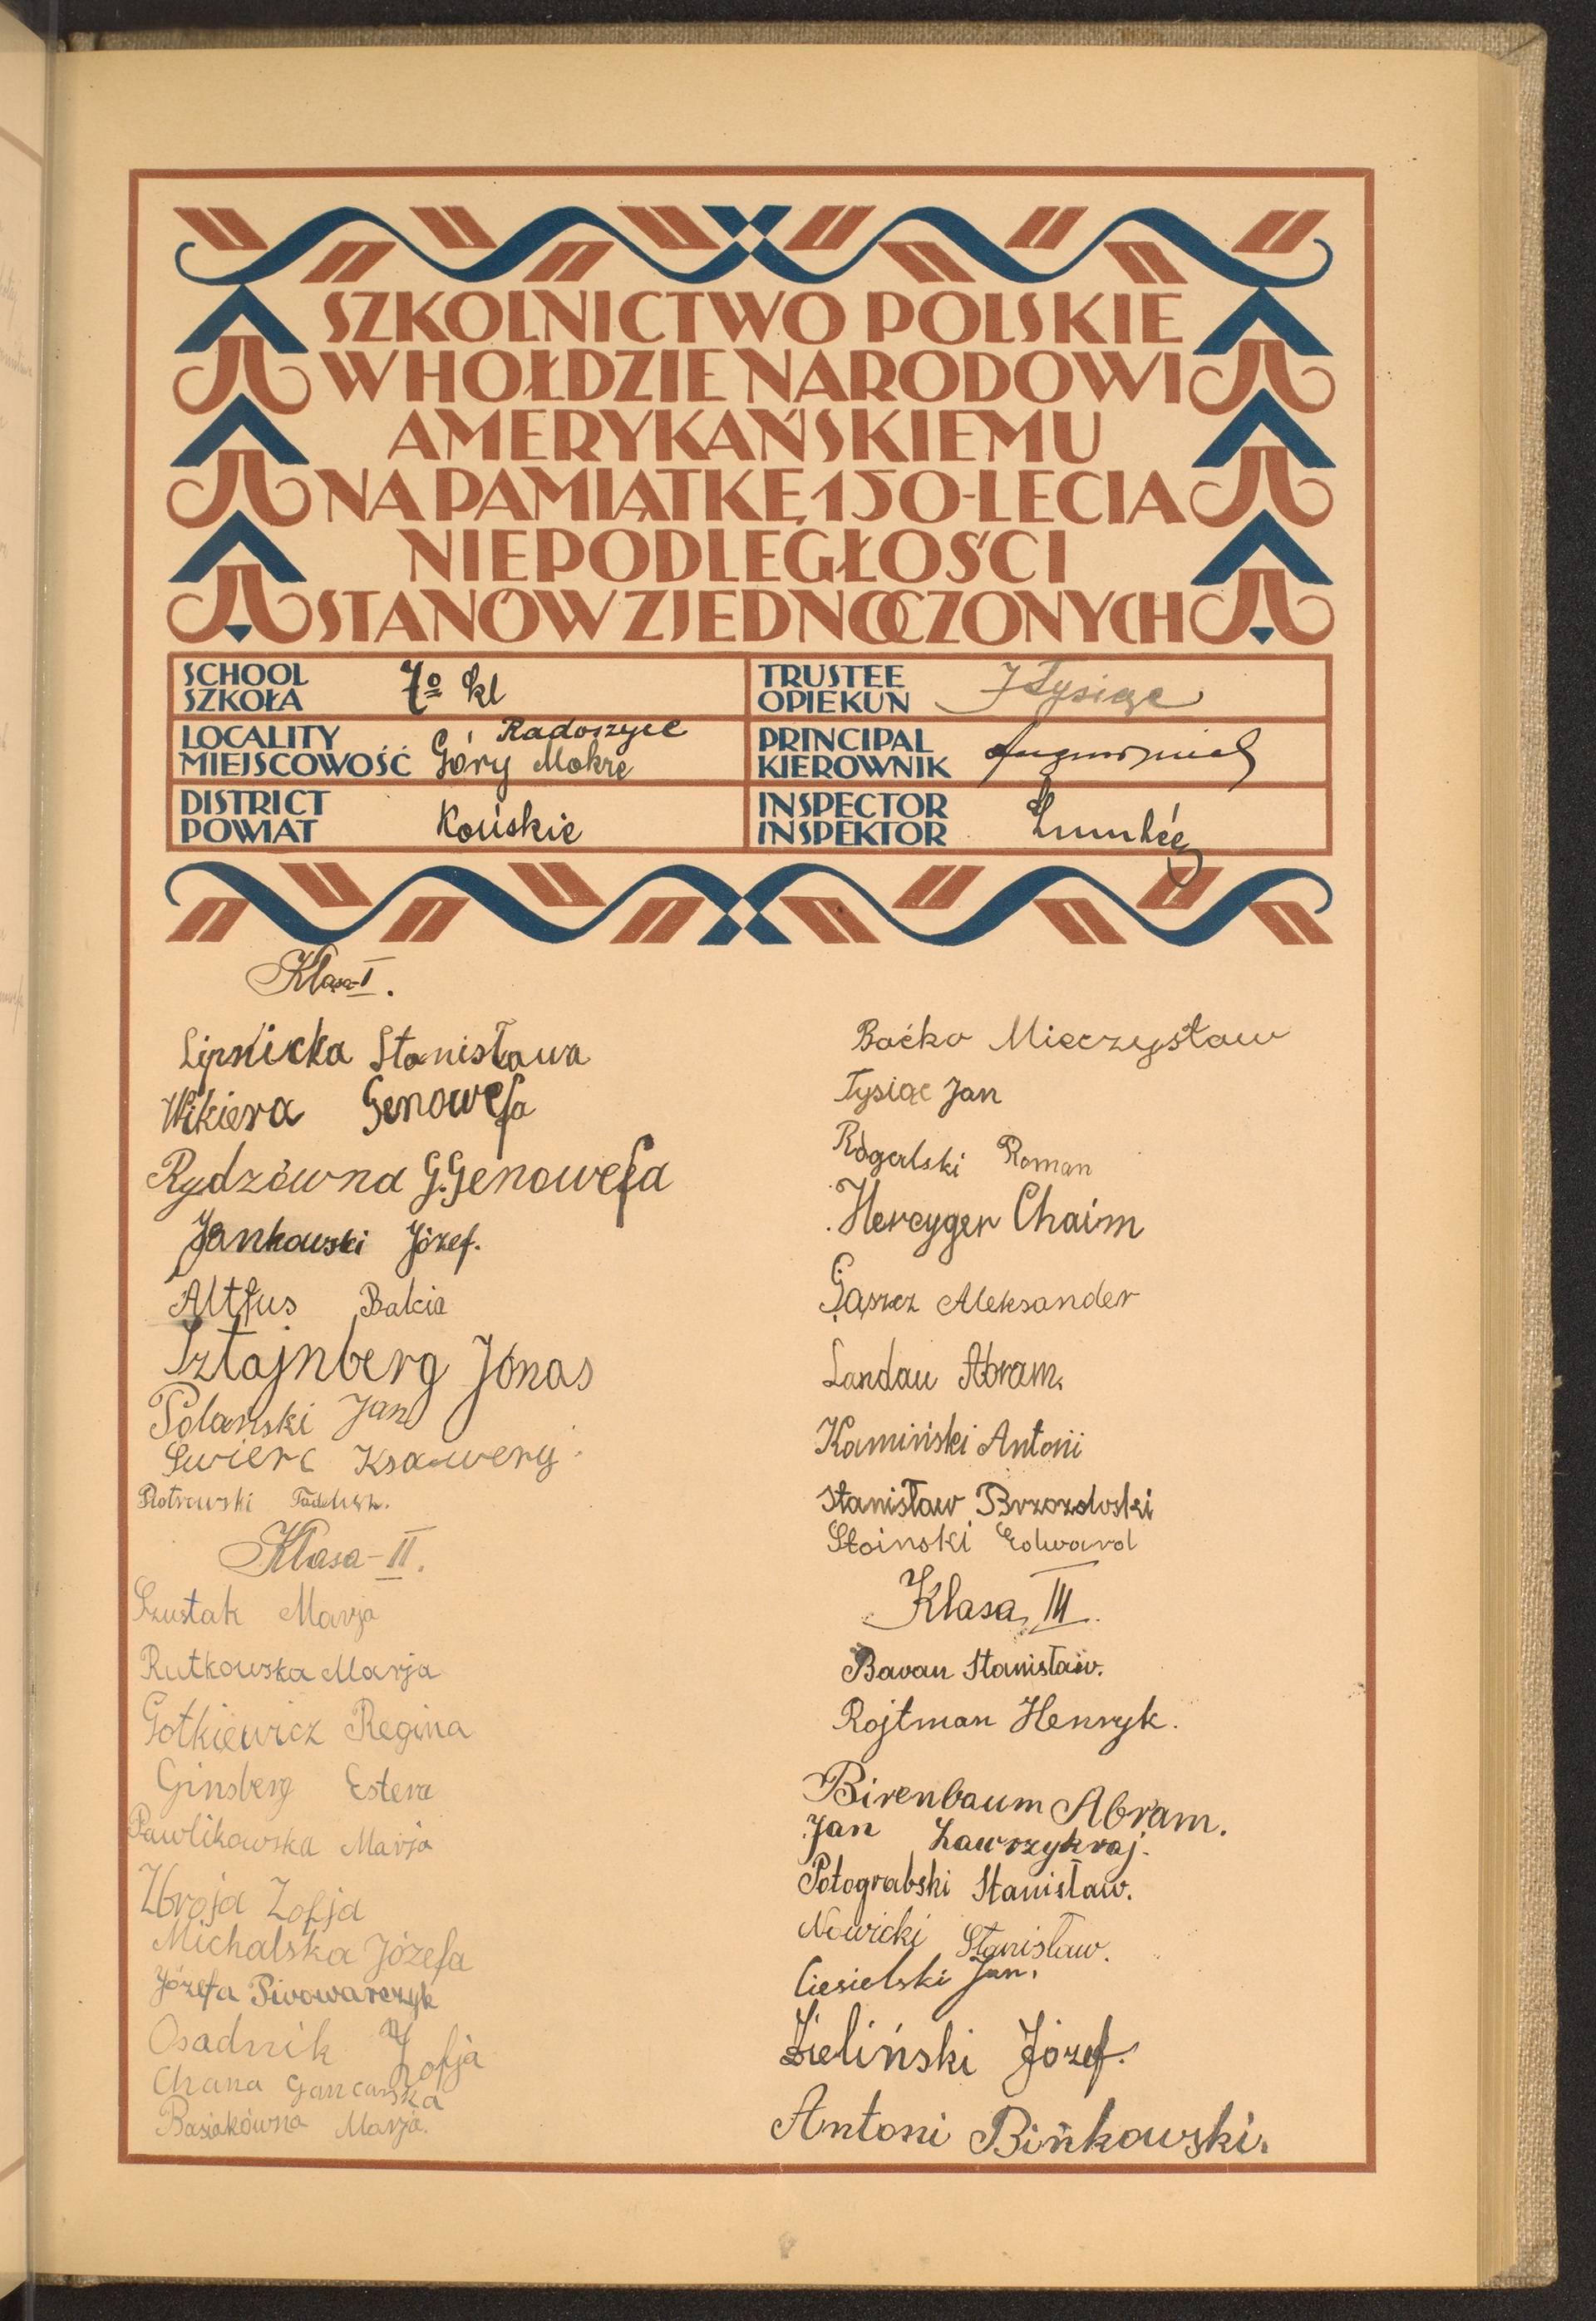 SZKOLNICTWO POLSKIE
W HOŁDZIE NARODOWI
AMERYKAŃSKIEMU
NA PAMIĄTKĘ 150-LECIA
NIEPODLEGŁOŚCI
STANÓW ZJEDNOCZONYCH
SCHOOL
SZKOŁA
7º kl
TRUSTEE
OPIEKUN
J Łysiąc
LOCALITY
MIEJSCOWOŚĆ
Radoszyce
Góry Mokre
PRINCIPAL
KIEROWNIK
DISTRICT
POWIAT
Końskie
INSPECTOR
INSPEKTOR
Klasa-I.
Lipnicka Stanisława
Wikiera Genowefa
Rydzówna G. Genowefa
Jankowski Józef.
Altfus Balcia
Sztajnberg Jonas
Polański Jan
Swierc Ksawery
Piotrowski Tadeusz.
Klasa-II.
Szustak Marja
Rutkowska Marja
Gotkiewicz Regina
Ginsberg Estera
Pawlikowska Marja
Zbroja Zofja
Michalska Józefa
Józefa Piwowarczyk
Osadnik Zofja
Chana Gancarska
Basiakówna Marja.
Baćko Mieczysław
Łysiąc Jan
Rogalski Roman
Hercyger Chaim
Gąszcz Aleksander
Landau Abram.
Kamiński Antoni
Stanisław Brzozdoski
Stoinski Edward
Klasa III.
Baran Stanisław.
Rojtman Henryk.
Birenbaum Abram.
Jan Zawrzykraj.
Potograbski Stanisław.
Nowicki Stanisław.
Ciesielski Jan.
Zieliński Józef.
Antoni Bińkowski.